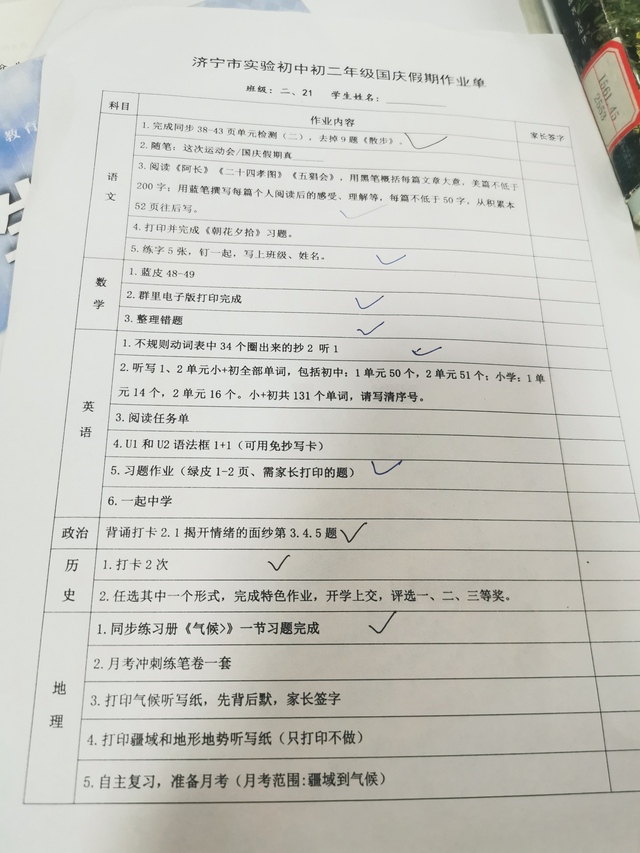 济宁市实验初中初二年级国庆假期作业单
班级：二、21 学生姓名：
科目 作业内容 家长签字
语文
1.完成同步38-43页单元检测（二），去掉9题《散步》。
2.随笔：这次运动会/国庆假期真
3.阅读《阿长》《二十四孝图》《五猖会》，用黑笔概括每篇文章大意，美篇不低于
200字；用蓝笔撰写每篇个人阅读后的感受、理解等，每篇不低于50字，从积累本
52页往后写。
4.打印并完成《朝花夕拾》习题。
5.练字5张，钉一起，写上班级、姓名。
数学
1.蓝皮48-49
2.群里电子版打印完成
3.整理错题
英语
1.不规则动词表中34个圈出来的抄2 听1
2.听写1、2单元小+初全部单词，包括初中：1单元50个，2单元51个；小学：1单
元14个，2单元16个。小+初共131个单词，请写清序号。
3.阅读任务单
4.U1和U2语法框1+1（可用免抄写卡）
5.习题作业（绿皮1-2页、需家长打印的题）
6.一起中学
政治 背诵打卡2.1揭开情绪的面纱第3.4.5题
历史
1.打卡2次
2.任选其中一个形式，完成特色作业，开学上交，评选一、二、三等奖。
地理
1.同步练习册《气候>》一节习题完成
2.月考冲刺练笔卷一套
3.打印气候听写纸，先背后默，家长签字
4.打印疆域和地形地势听写纸（只打印不做）
5.自主复习，准备月考（月考范围:疆域到气候）
教育
1561.45